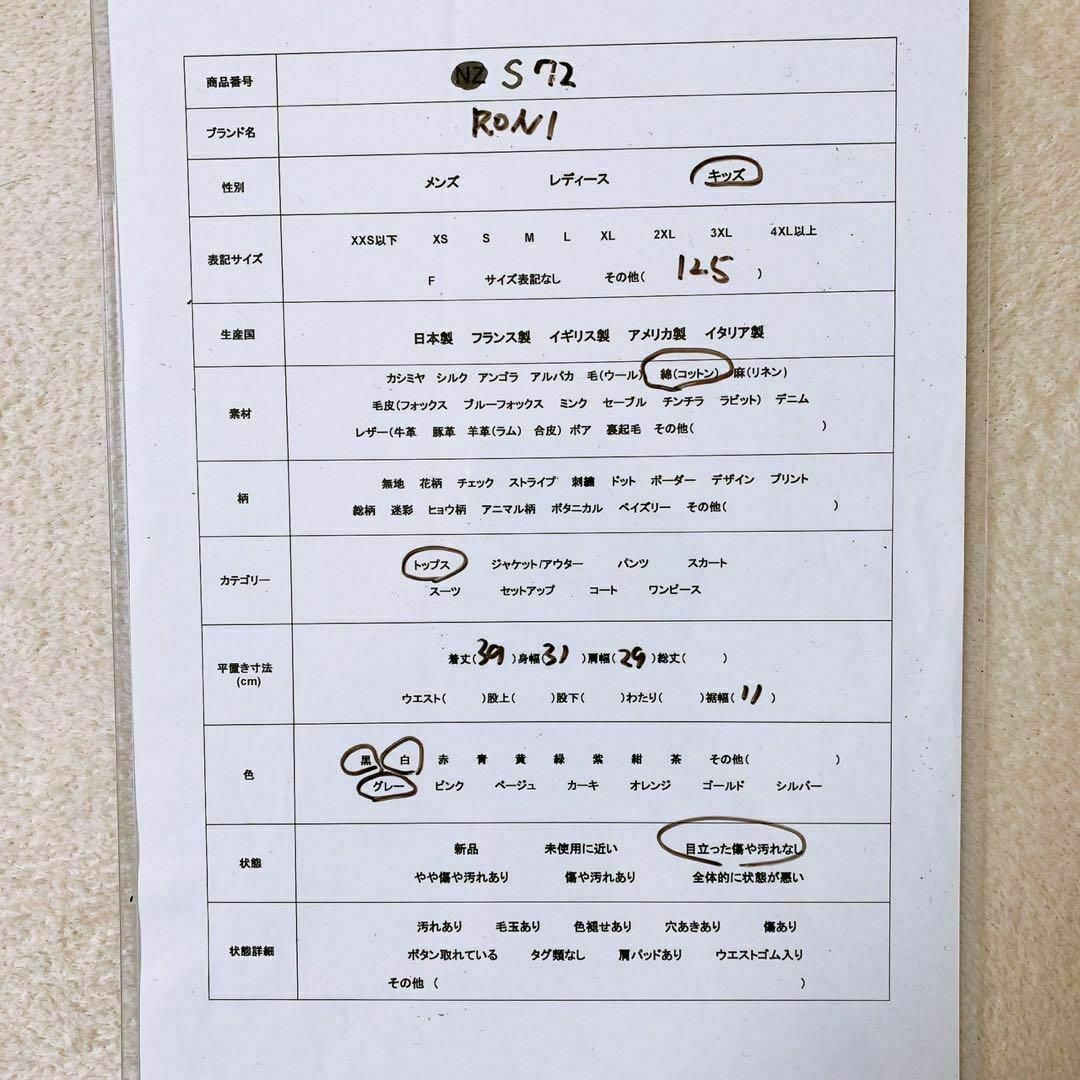 商品番号 NZ S 72
ブランド名 RONI
性別 メンズ レディース キッズ
表記サイズ XXS以下 XS S M L XL 2XL 3XL 4XL以上
F サイズ表記なし その他( 125 )
生産国 日本製 フランス製 イギリス製 アメリカ製 イタリア製
カシミヤ シルク アンゴラ アルパカ 毛(ウール) 綿(コットン) 麻(リネン)
素材 毛皮(フォックス ブルーフォックス ミンク セーブル チンチラ ラビット) デニム
レザー(牛革 豚革 羊革(ラム) 合皮) ボア 裏起毛 その他( )
柄 無地 花柄 チェック ストライプ 刺繍 ドット ボーダー デザイン プリント
総柄 迷彩 ヒョウ柄 アニマル柄 ボタニカル ペイズリー その他( )
カテゴリー トップス ジャケット/アウター パンツ スカート
スーツ セットアップ コート ワンピース
平置き寸法 着丈(39)身幅(31)肩幅(29)総丈( )
(cm) ウエスト( )股上( )股下( )わたり( )裾幅( 11 )
色 黒 白 赤 青 黄 緑 紫 紺 茶 その他( )
グレー ピンク ベージュ カーキ オレンジ ゴールド シルバー
状態 新品 未使用に近い 目立った傷や汚れなし
やや傷や汚れあり 傷や汚れあり 全体的に状態が悪い
汚れあり 毛玉あり 色褪せあり 穴あきあり 傷あり
状態詳細 ボタン取れている タグ類なし 肩パッドあり ウエストゴム入り
その他 ( )